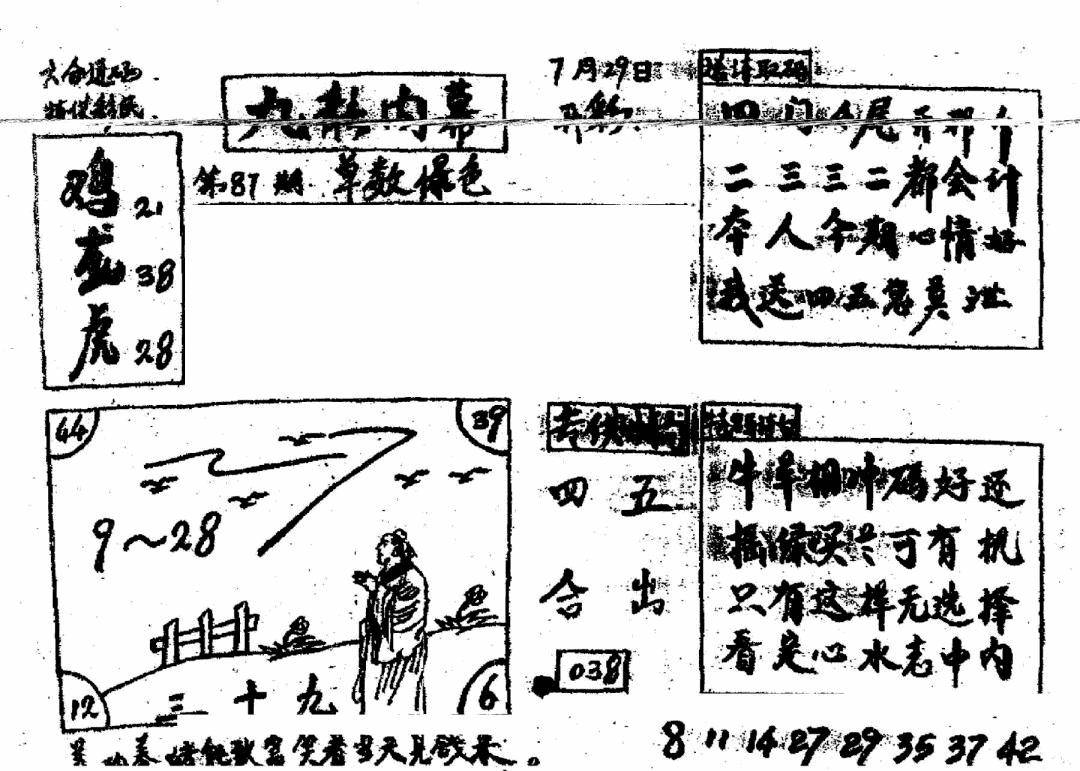 六合通码
九彩内幕
7月29日
开彩
鸡 21
龙 38
虎 28
第87期 草数绿色
特译取码
四门 尾开那个
二三三二都会计
本人今期心情好
我送四五您莫
44
39
9~28
12
6
三十九
专供
四五
合出
038
牛羊相冲码好还
可有机
只有这样无选择
看是心水志中内
能致富笑看当天见钱来。
8 11 14 27 29 35 37 42